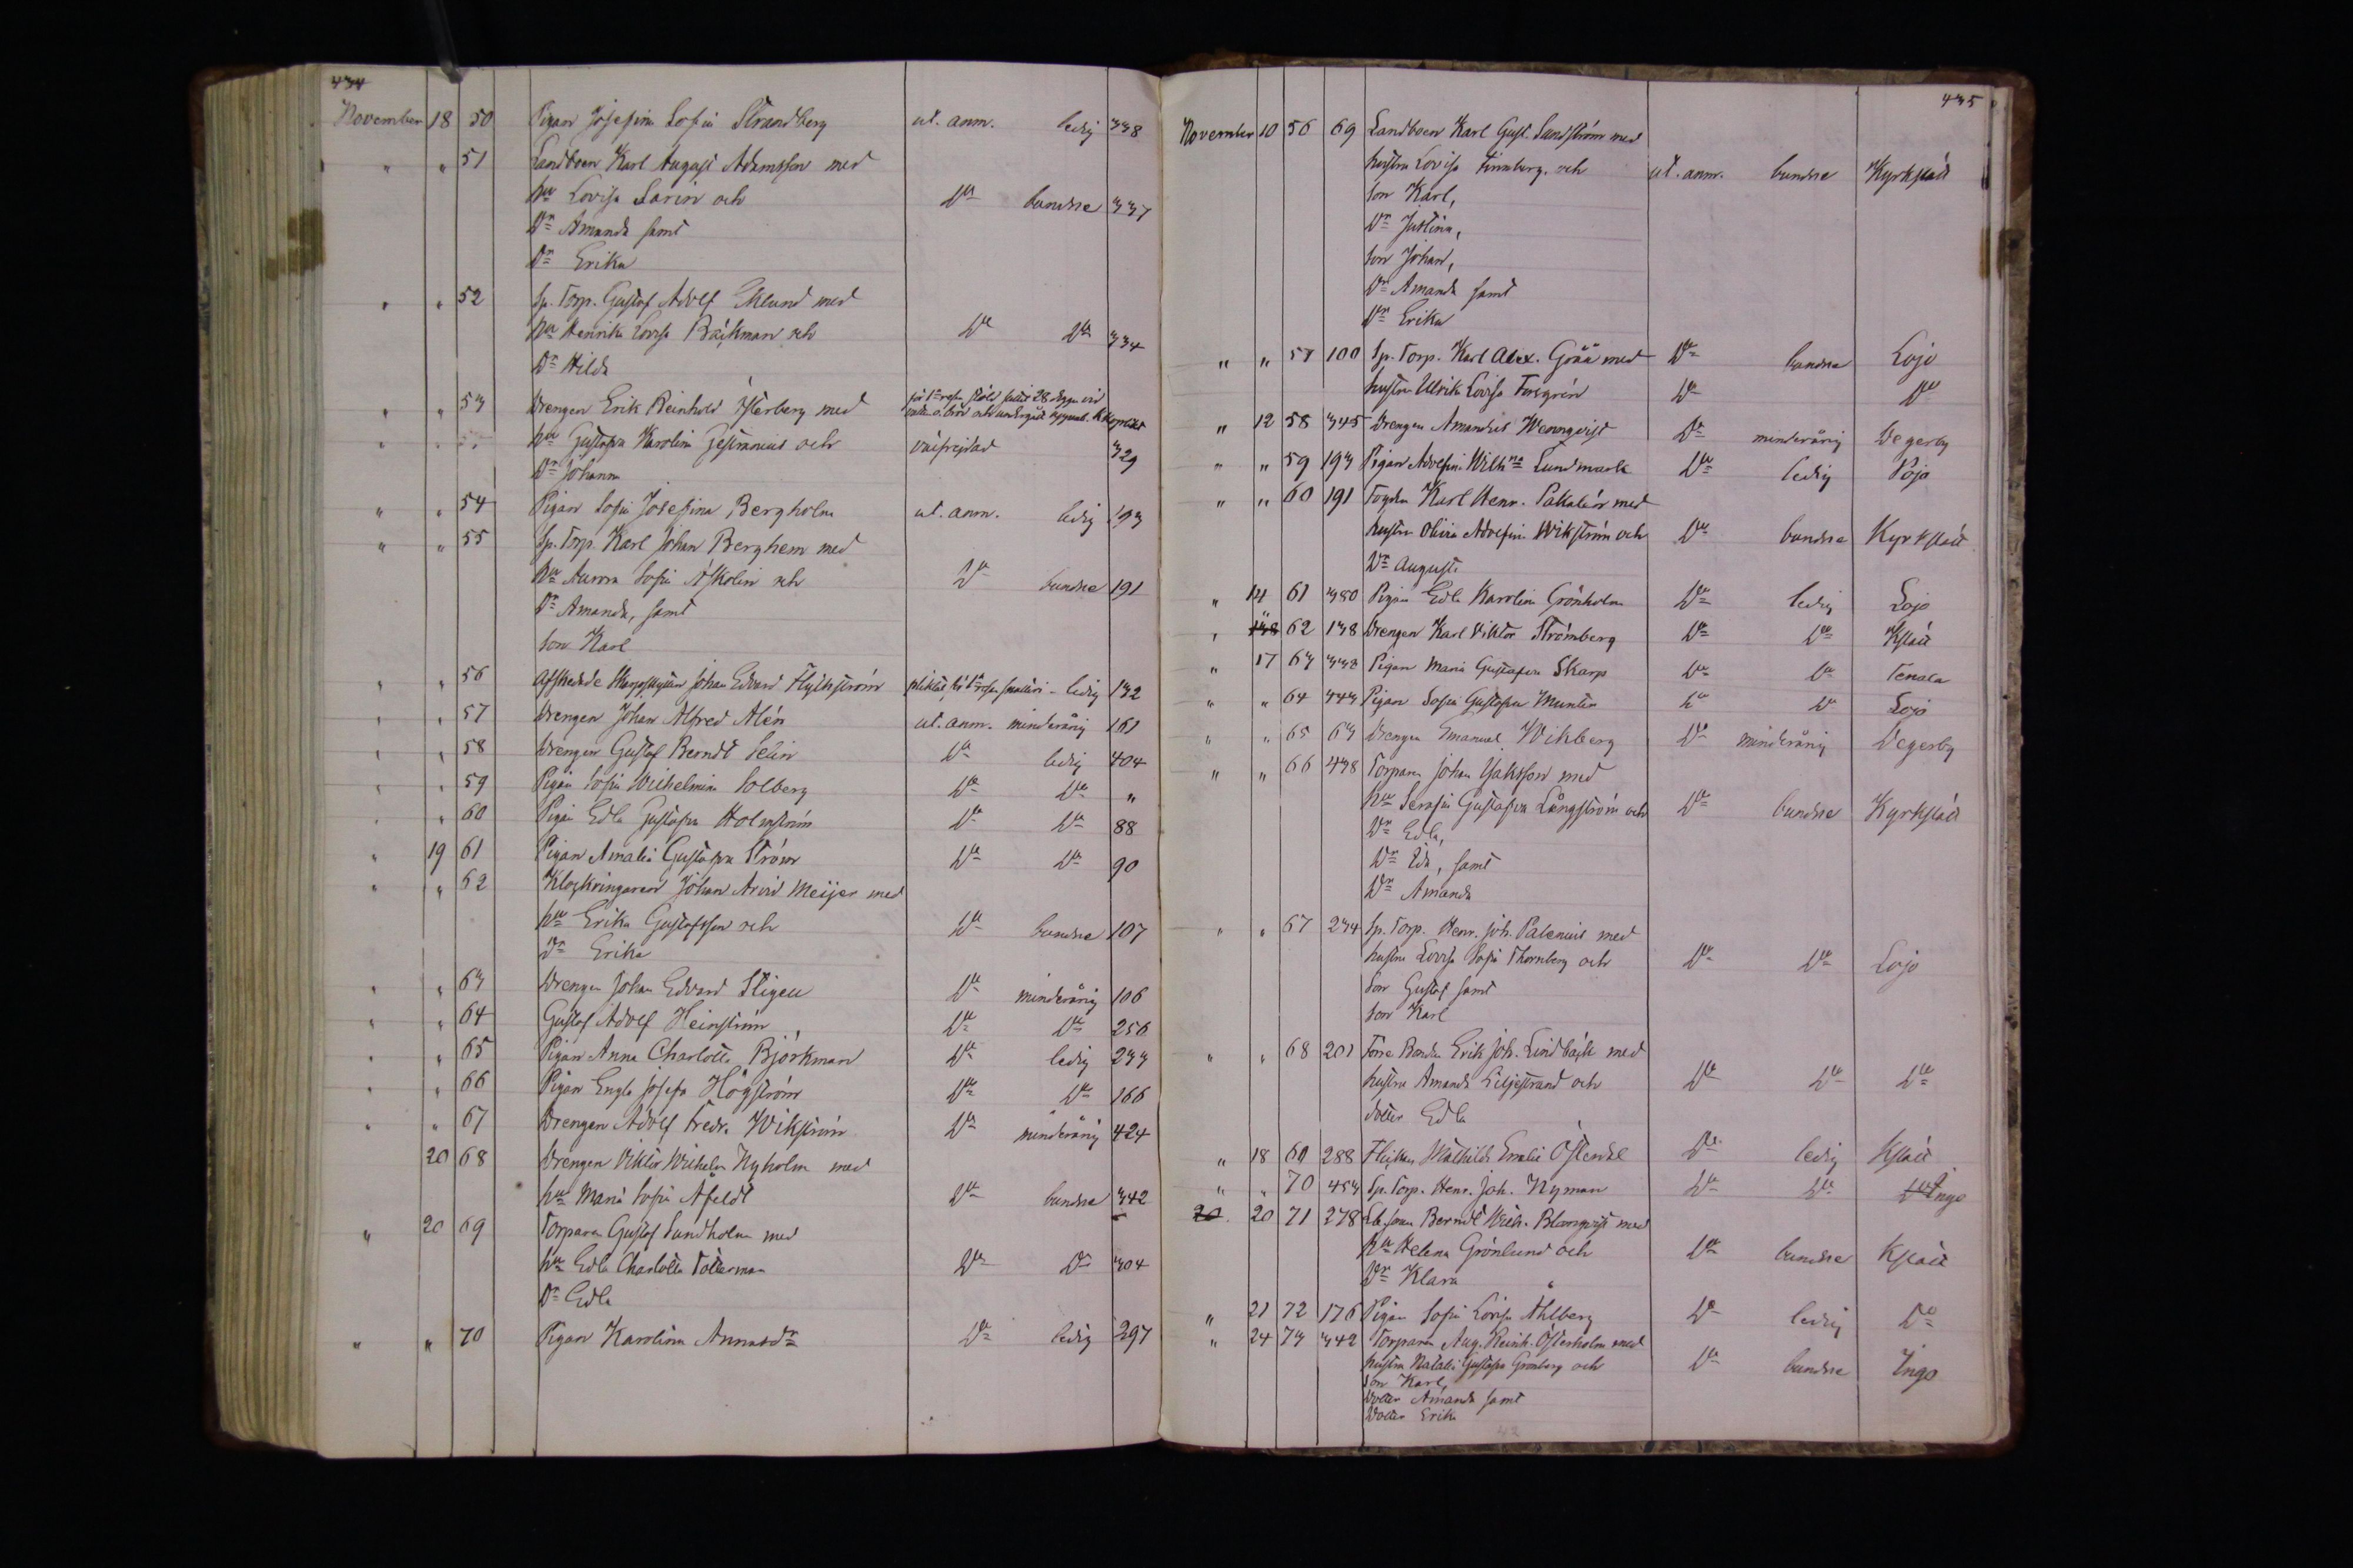 434
November 18 50 Pigan Josefina Sofia Strandberg ut. anm. ledig 338
" " 51 Landboen Karl August Adamsson med
hu Lovisa Sarin och Do bundne 337
Dr Amanda samt
Dr Erika
" " 52 Sp. Torp. Gustaf Adolf Eklund med
hu Henrika Lovisa Bäckman och Do Do 334
Dr Hilda
" " 53 Drengen Erik Reinhold Österberg med
hu Gustafva Karolina och 329
Dr Johanna
" " 54 Pigan Sofia Josefina Bergholm ut. anm. ledig 193
" " 55 Sp. Torp. Karl Johan Berghem med
hu Aurora Sofia Åskolin och Do bundne 191
Dr Amanda, samt
son Karl
" " 56 Afskedade Johan Edvard Flyckström ledig 132
" " 57 Drengen Johan Alfred Alén ut. anm. minderårig 161
" " 58 Drengen Gustaf Berndt Selin Do ledig 404
" " 59 Pigan Sofia Wilhelmina Solberg Do Do "
" " 60 Pigan Edla Gustafva Holmström Do Do 88
" 19 61 Pigan Amalia Gustafva Ström Do Do 90
" " 62 Klockringaren Johan Arvid Meijer med
hu Erika Gustafsson och Do bundne 107
Dr Erika
" " 63 Drengen Johan Edvard Stigell Do minderårig 106
" " 64 Gustaf Adolf Heinström Do Do 256
" " 65 Pigan Anna Charlotta Björkman Do ledig 233
" " 66 Pigan Engla Josefa Högström Do Do 166
" " 67 Drengen Adolf Fredr. Wikström Do minderårig 424
20 68 Drengen Viktor Wilhelm Nyholm med
hu Maria Sofia Åfeldt Do bundne 342
" 20 69 Torparen Gustaf Sundholm med
hu Edla Charlotta Tötterman Do Do 304
Dr Edla
" " 70 Pigan Karolina Annasdr Do ledig 297
435
November 10 56 69 Landboen Karl Gust. Sundström med
hustru Lovisa Finnberg och ut. anm. bundne Kyrkslätt
son Karl,
Dr Justina,
son Johan,
Dr Amanda samt
Dr Erika
" " 57 100 Sp. Torp. Karl Alex. Gråå med Do bundne Lojo
hustru Ulrika Lovisa Forsgrén Do Do
" 12 58 345 Drengen Amandus Wennqvist Do minderårig Degerby
" " 59 193 Pigan Adolfina Wilhna Lundmark Do ledig Pojo
" " 60 191 Karl Henr. Pakalén med
hustru Olivia Adolfina Wikström och Do bundne Kyrkslätt
Dr Augusta
" 14 61 380 Pigan Edla Karolina Grönholm Do ledig Lojo
" 138 62 138 Drengen Karl Viktor Strömberg Do Do Kslätt
" 17 63 332 Pigan Maria Gustafva Skarp Do Do Tenala
" " 64 443 Pigan Sofia Gustafva Munter Do Do Lojo
" " 65 63 Drengen Emanuel Wikberg Do minderårig Degerby
" " 66 438 Torparen Johan Isaksson med
hu Serafia Gustafva Långström och Do bundne Kyrkslätt
Dr Edla,
Dr Ida, samt
Dr Amanda
" " 67 234 Sp. Torp. Henr. Joh. Palenius med
hustru Lovisa Sofia Thornberg och Do Do Lojo
Son Gustaf samt
son Karl
" " 68 201 Torra Bonden Erik Joh. Lindbäck med
hustru Amanda Liljestrand och Do Do Do
dotter Edla
" 18 69 288 Flickan Mathilda Emelie Östendal Do ledig Kslätt
" " 70 453 Sp. Torp. Henr. Joh. Nyman Do Do Do Ingo
20 20 71 278 Berndt Wilh. Blomqvist med
hu Helena Grönlund och Do bundne Kslätt
Dr Klara
" 21 72 176 Pigan Sofia Lovisa Åhlberg Do ledig Do
" 24 73 342 Torparen Aug. Reinh. Österholm med
hustru Natalia Gustafva Grönberg och Do bundne Ingo
son Karl,
Dotter Amanda samt
Dotter Erika